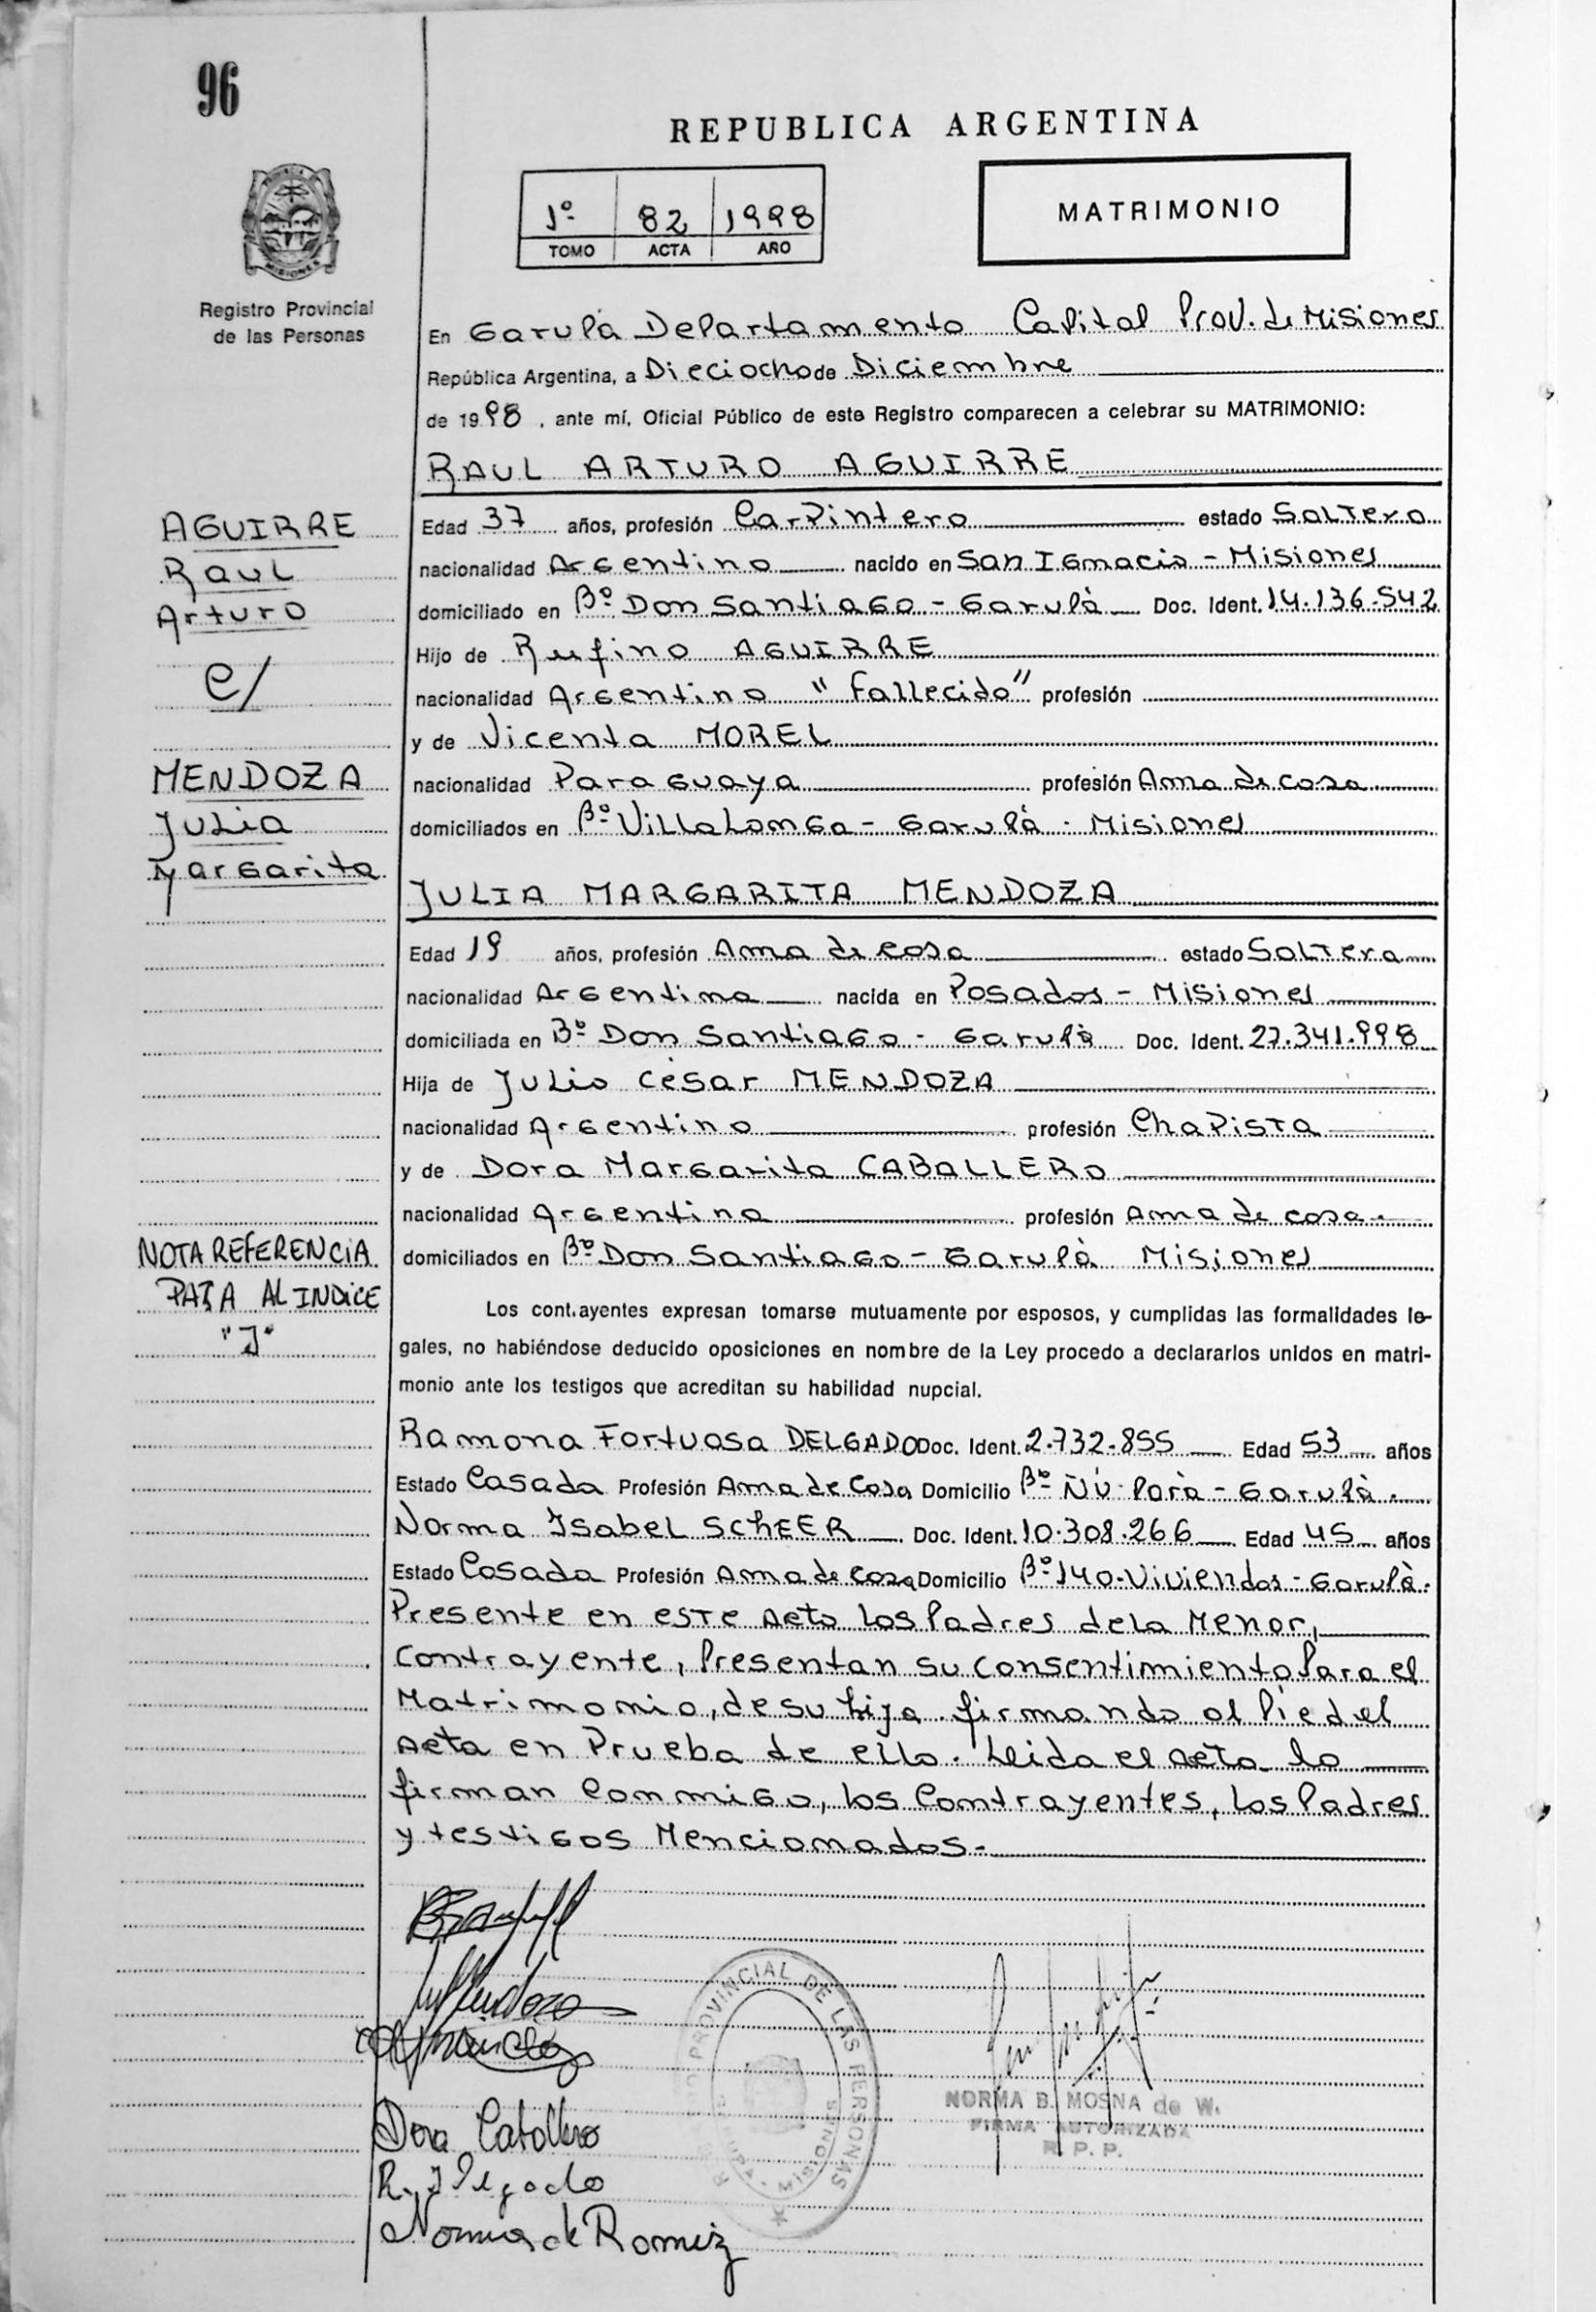 96
REPUBLICA ARGENTINA
1º 82 1998
TOMO ACTA AÑO
MATRIMONIO
MISIONES
Registro Provincial
de las Personas
En Garupá Departamento Capital Prov. de Misiones
República Argentina, a Dieciocho de Diciembre
de 1998, ante mí, Oficial Público de este Registro comparecen a celebrar su MATRIMONIO:
RAUL ARTURO AGUIRRE
Edad 37 años, profesión Carpintero estado Soltero
nacionalidad Argentino nacido en San Ignacio - Misiones
domiciliado en Bº Don Santiago - Garupá Doc. Ident. 14.136.542
Hijo de Rufino AGUIRRE
nacionalidad Argentino "fallecido" profesión
y de Vicenta MOREL
nacionalidad Paraguaya profesión Ama de casa
domiciliados en Bº Villalonga - Garupá - Misiones
JULIA MARGARITA MENDOZA
Edad 19 años, profesión Ama de casa estado Soltera
nacionalidad Argentina nacida en Posadas - Misiones
domiciliada en Bº Don Santiago - Garupá Doc. Ident. 27.341.998
Hija de Julio César MENDOZA
nacionalidad Argentino profesión Chapista
y de Dora Margarita CABALLERO
nacionalidad Argentina profesión Ama de casa.
domiciliados en Bº Don Santiago - Garupá Misiones
Los cont.ayentes expresan tomarse mutuamente por esposos, y cumplidas las formalidades le-
gales, no habiéndose deducido oposiciones en nombre de la Ley procedo a declararlos unidos en matri-
monio ante los testigos que acreditan su habilidad nupcial.
Ramona Fortuosa DELGADO Doc. Ident. 2.732.855 Edad 53 años
Estado Casada Profesión Ama de Casa Domicilio Bº Ñu Porá - Garupá.
Norma Isabel SCHEER Doc. Ident. 10.308.266 Edad 45 años
Estado Casada Profesión Ama de Casa Domicilio Bº 140 Viviendas - Garupá.
Presente en este Acto los Padres de la Menor,
Contrayente, Presentan su consentimiento Para el
Matrimonio, de su hija firmando al Pie del
Acta en Prueba de ello. Leida el Acta la
firman Conmigo, los Contrayentes, los Padres
y testigos Mencionados.
AGUIRRE
Raul
Arturo
c/
MENDOZA
Julia
Margarita
NOTA REFERENCIA
PASA AL INDICE
"J"
Dora Caballero
R. F Delgado
Norma de Ramirez
PROVINCIAL DE LAS PERSONAS
MISIONES
NORMA B. MOSNA de W.
FIRMA AUTORIZADA
R. P. P.